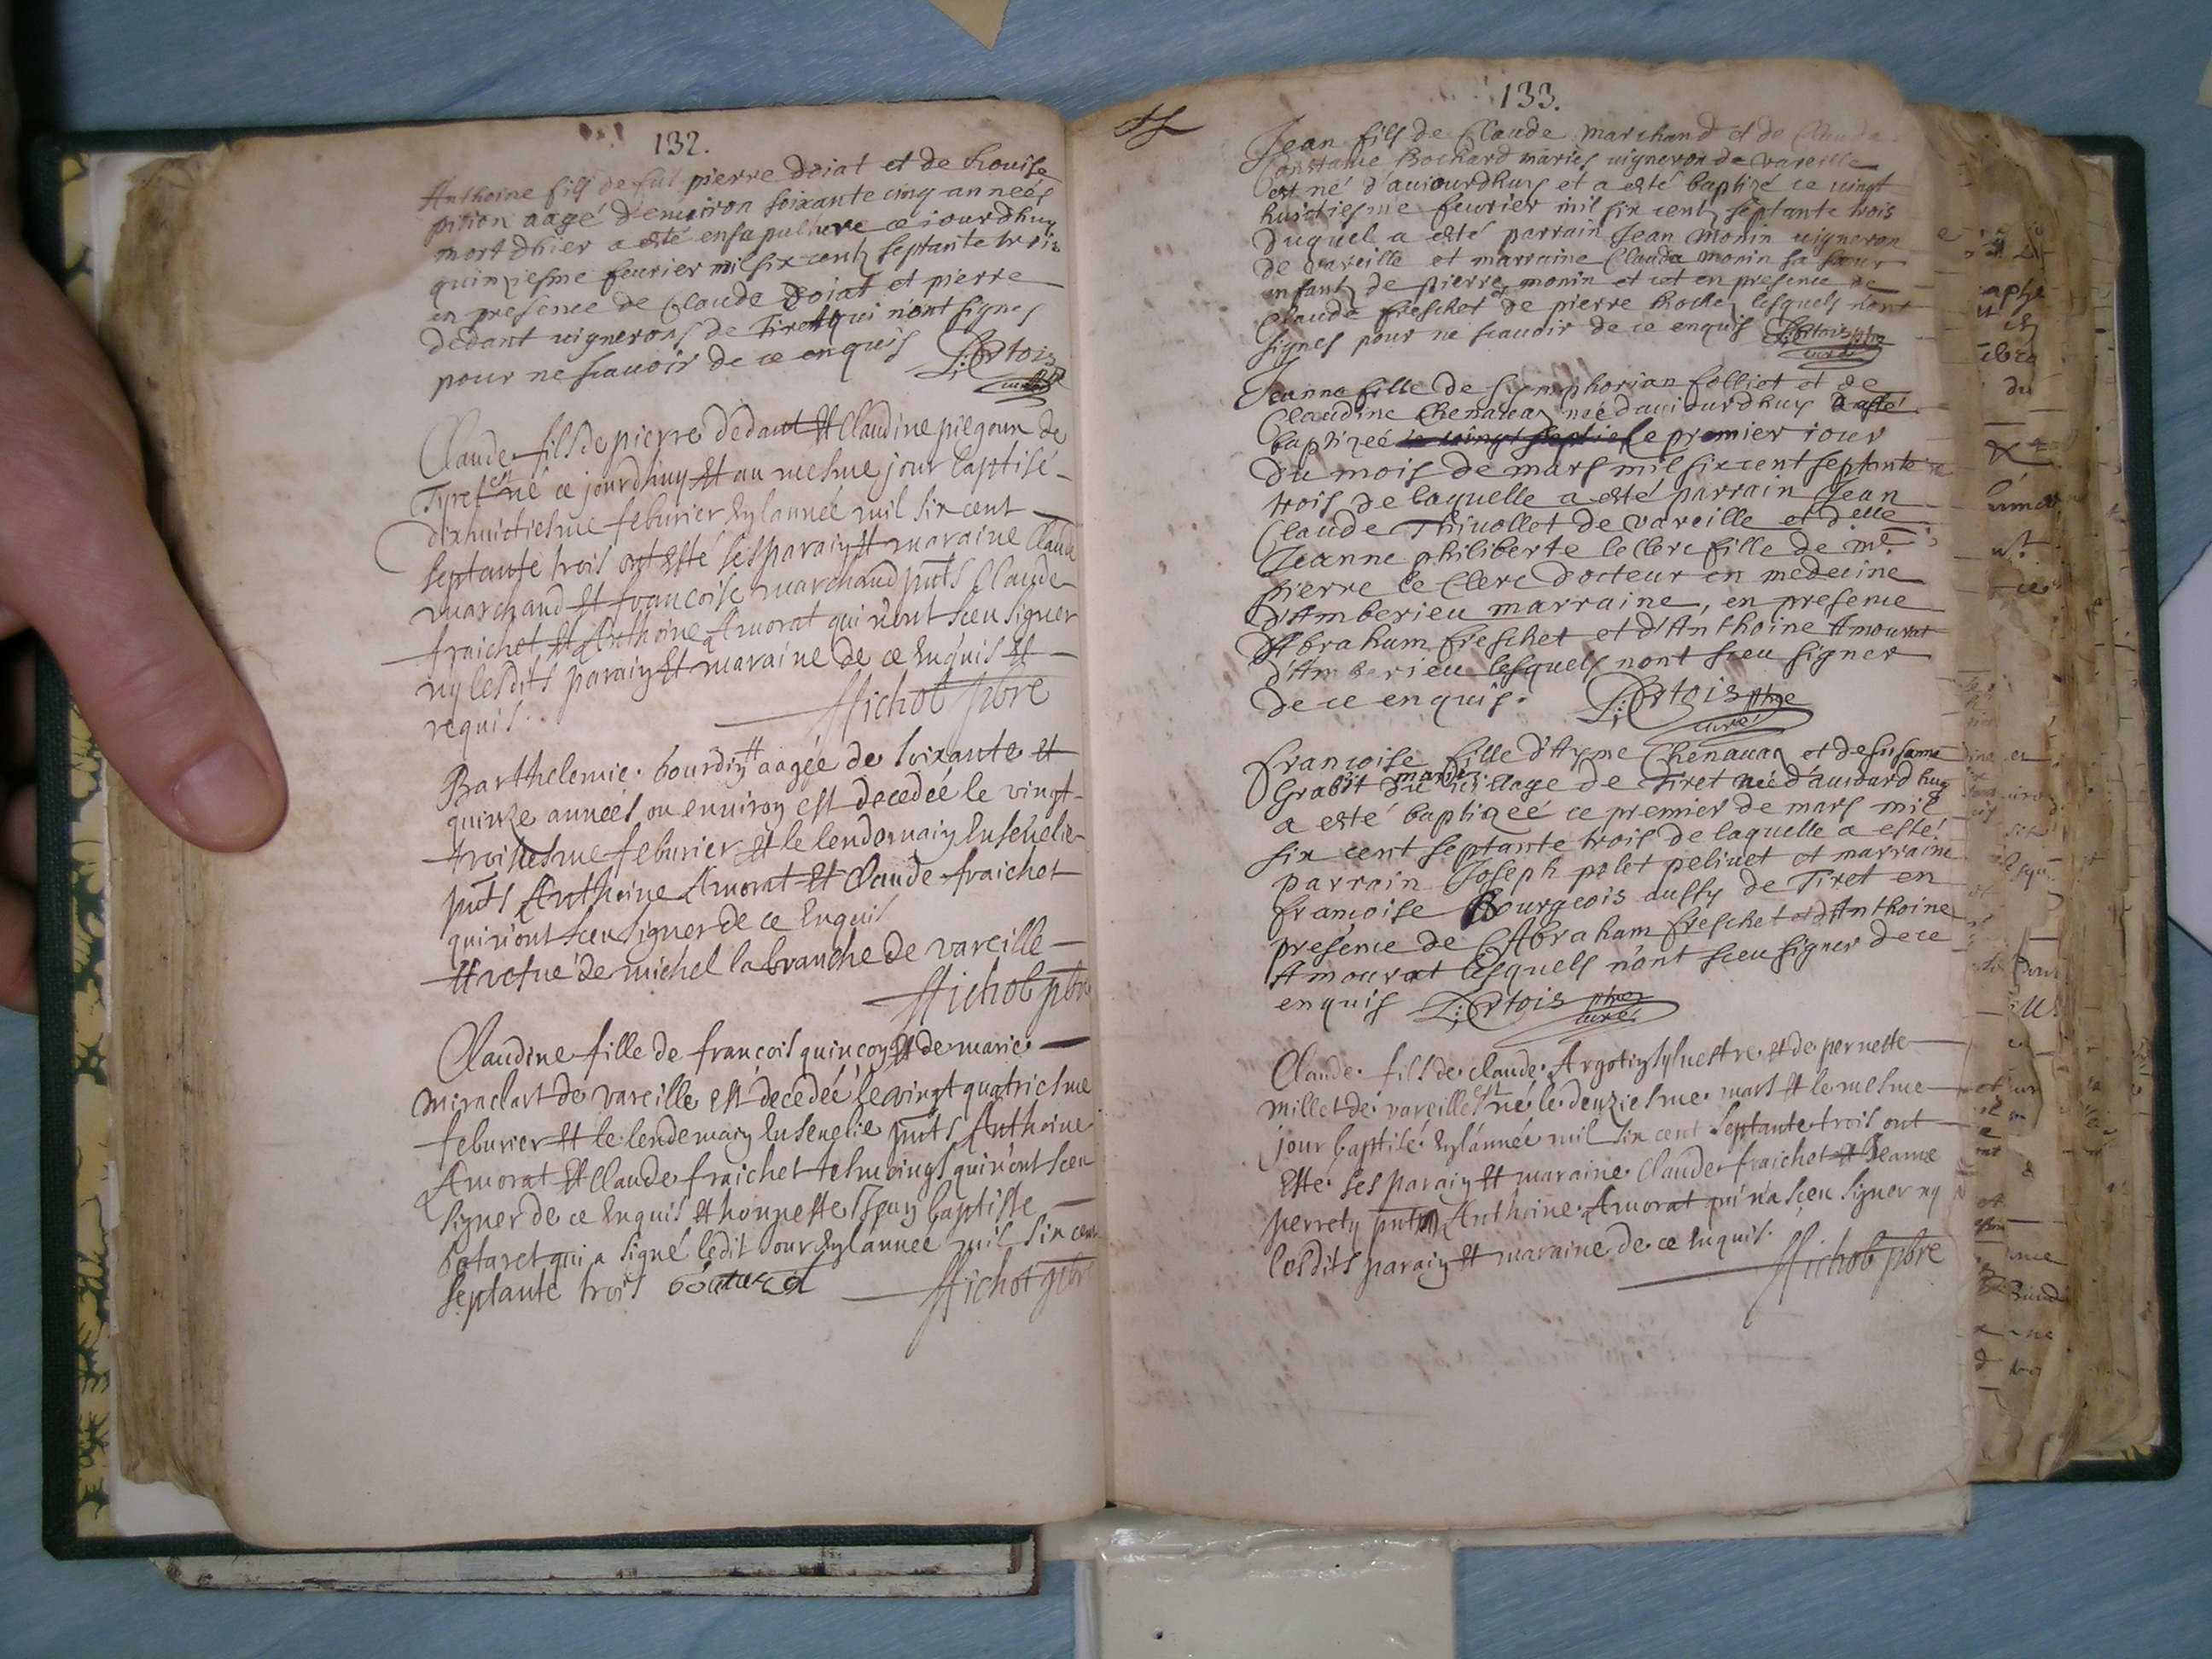 132.
Anthoine fils de fut pierre Dojat et de Louise
pition aagé denuiron soixante cinq annees
mort dhier a esté ensepulture ce iourdhuy
quinziesme feurier mil six centz septante trois
en presence de Claude Dojat et pierre
dedant uignerons de Tiret qui nont signes
pour ne scauoir de ce enquis
curé
Claude fils de pierre dedant et Claudine piegoux de
Tyret est né ce jourdhuy et au mesme jour baptisé
dixhuictiesme feburier en lannée mil six cent
septante trois ont esté ses parain et maraine Claude
marchand et francoise marchand pnts Claude
fraichet et Anthoine Amorat qui n'ont sceu signer
ny lesdits parain et maraine de ce enquis et
requis. Michot pbre
Barthelemie bourdin # aagée de soixante et
quinze années ou enuiron est decedée le vingt
troisiesme feburier et le lendemain enseuelie
pnts Anthoine Amorat et Claude fraichet
qui n'ont sceu signer de ce enquis
# vefue de michel labranche de vareille
Michot pbre
Claudine fille de francois quincon et de marie
miraclart de vareille est decedée le vingt quatriesme
feburier et le lendemain enseuelie pnts Anthoine
Amorat et Claude fraichet tesmoings qui n'ont sceu
signer de ce enquis et honneste Jean baptiste
bataret qui a signé ledit jour en lannee mil six cent
septante trois Michot pbre
133.
Jean fils de Claude marchand et de
Bochard mariés uigneron de vareille
est né d'auiourdhuy et a esté baptizé ce uingt
huictiesme feurier mil six centz septante trois
Duquel a esté parrain Jean monin uigneron
de vareille et marraine Clauda monin sa soeur
enfantz de pierre monin et cet en presence de
Claude freschet et de pierre lesquels nont
signes pour ne scauoir de ce enquis
curé
Jeanne fille de Symphorian folliet et de
Claudine Chenauaz née dauiourdhuy a esté
baptizeé le premier iour
du mois de mars mil six cent septante
trois de laquelle a esté parrain Jean
Claude Thiuollet de vareille et d.elle
Jeanne philiberte le Clerc fille de mr.
pierre le Clerc docteur en medecine
d'Amberieu marraine, en presence
d'Abraham freschet et d'Anthoine Amourat
d'Amberieu lesquels nont sceu signer
de ce enquis.
curé
francoise fille d'Ayme Chenauaz et de susanne
Grabit mariés du uillage de Tiret née d'auiourdhuy
a esté baptizeé ce premier de mars mil
six cent septante trois de laquelle a esté
parrain Joseph pelet peliuet et marraine
francoise Bourgeois aussy de Tiret en
presence de Abraham freschet et d'Anthoine
Amourat lesquels n'ont sceu signer de ce
enquis
curé
Claude fils de claude Argotin syluestre et de pernette
millet de vareille est né le deuziesme mars et le mesme
jour baptisé en l'année mil six cent septante trois ont
esté ses parain et maraine Claude fraichet et Jeanne
perretn pnt Anthoine Amorat qui n'a sceu signer ny
lesdits parain et maraine de ce enquis.
Michot pbre